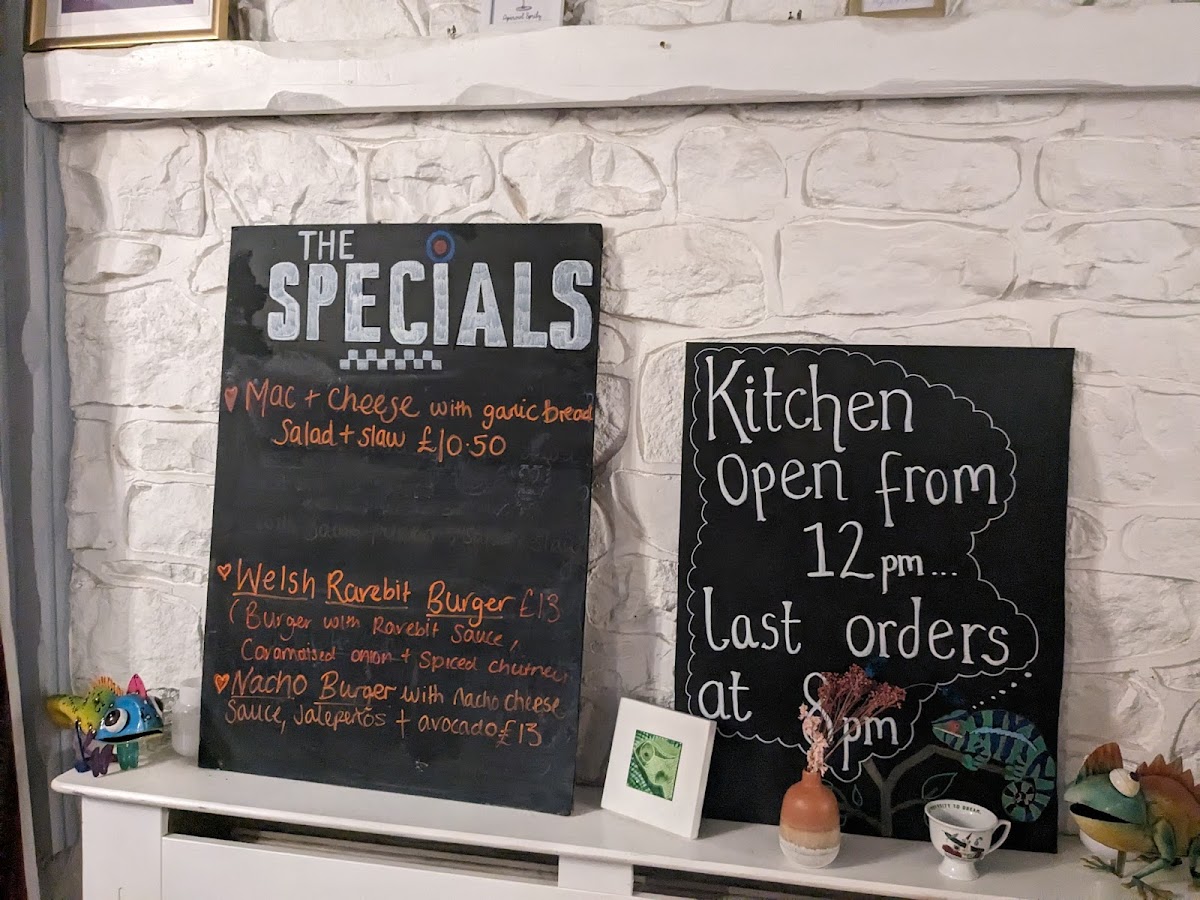 THE
SPECIALS
Mac + cheese with garlic bread
Salad + slaw £10.50
Welsh Rarebit Burger £13
(Burger with Rarebit sauce,
Caramalised onion + spiced chutney
Nacho Burger with nacho cheese
sauce, jalepenos + avocado £13
Kitchen
open from
12 pm...
last orders
at 8pm